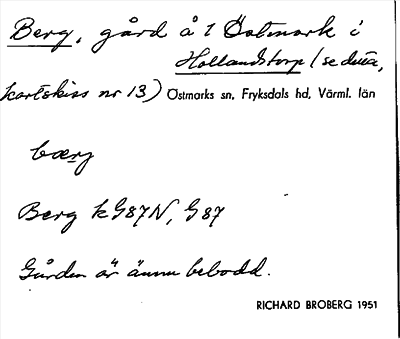 Berg, gård å 1 Östmark i
Hollandstorp (se detta,
kartskiss nr 13) Östmarks sn, Fryksdals hd, Värml. län
bærg
Berg k G87N, G87
Gården är ännu bebodd.
RICHARD BROBERG 1951